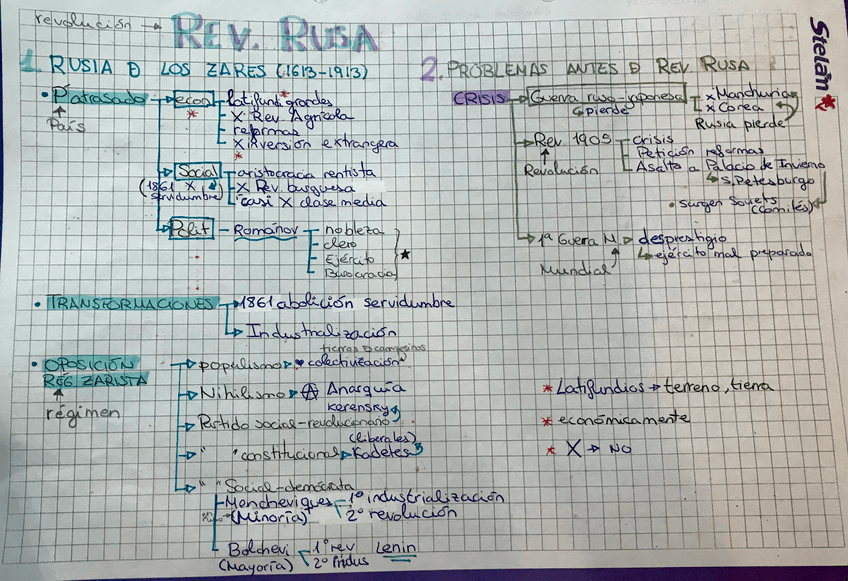 revolución → REV. RUSA
Stelan
1. RUSIA D LOS ZARES (1613-1913)
• P. atrasado → econ → latifund. grandes
País
X Rev. Agrícola
reformas
X inversión extrangera
Social → aristocracia rentista
(1861 X servidumbre)
X Rev. burguesa
casi X clase media
Polít – Románov → nobleza
clero
Ejército
Burocracia
• TRANSFORMACIONES → 1861 abolición servidumbre
→ Industrialización
• OPOSICIÓN REG. ZARISTA
régimen
→ populismo → colectivización
tierras D campesinos
→ Nihilismo → Anarquía
Kerensky
→ Partido social-revolucionario
(liberales)
→ " " constitucional → Kadetes
→ " " Social-demócrata
Mencheviques – 1º industrialización
(Minoría) 2º revolución
Bolchevi 1º rev Lenin
(Mayoría) 2º indus
2. PROBLEMAS ANTES D REV. RUSA
CRISIS → Guerra ruso-japonesa → X Manchuria
↳ Pierde X Corea
Rusia pierde
→ Rev 1905 – crisis
Revolución
Petición reformas
Asalto a Palacio de Invierno
↳ S. Petesburgo
• surgen Soviets
(comités)
→ 1ª Guerra M. → desprestigio
Mundial
↳ ejército mal preparado
* Latifundios → terreno, tierra
* económicamente
* X → NO